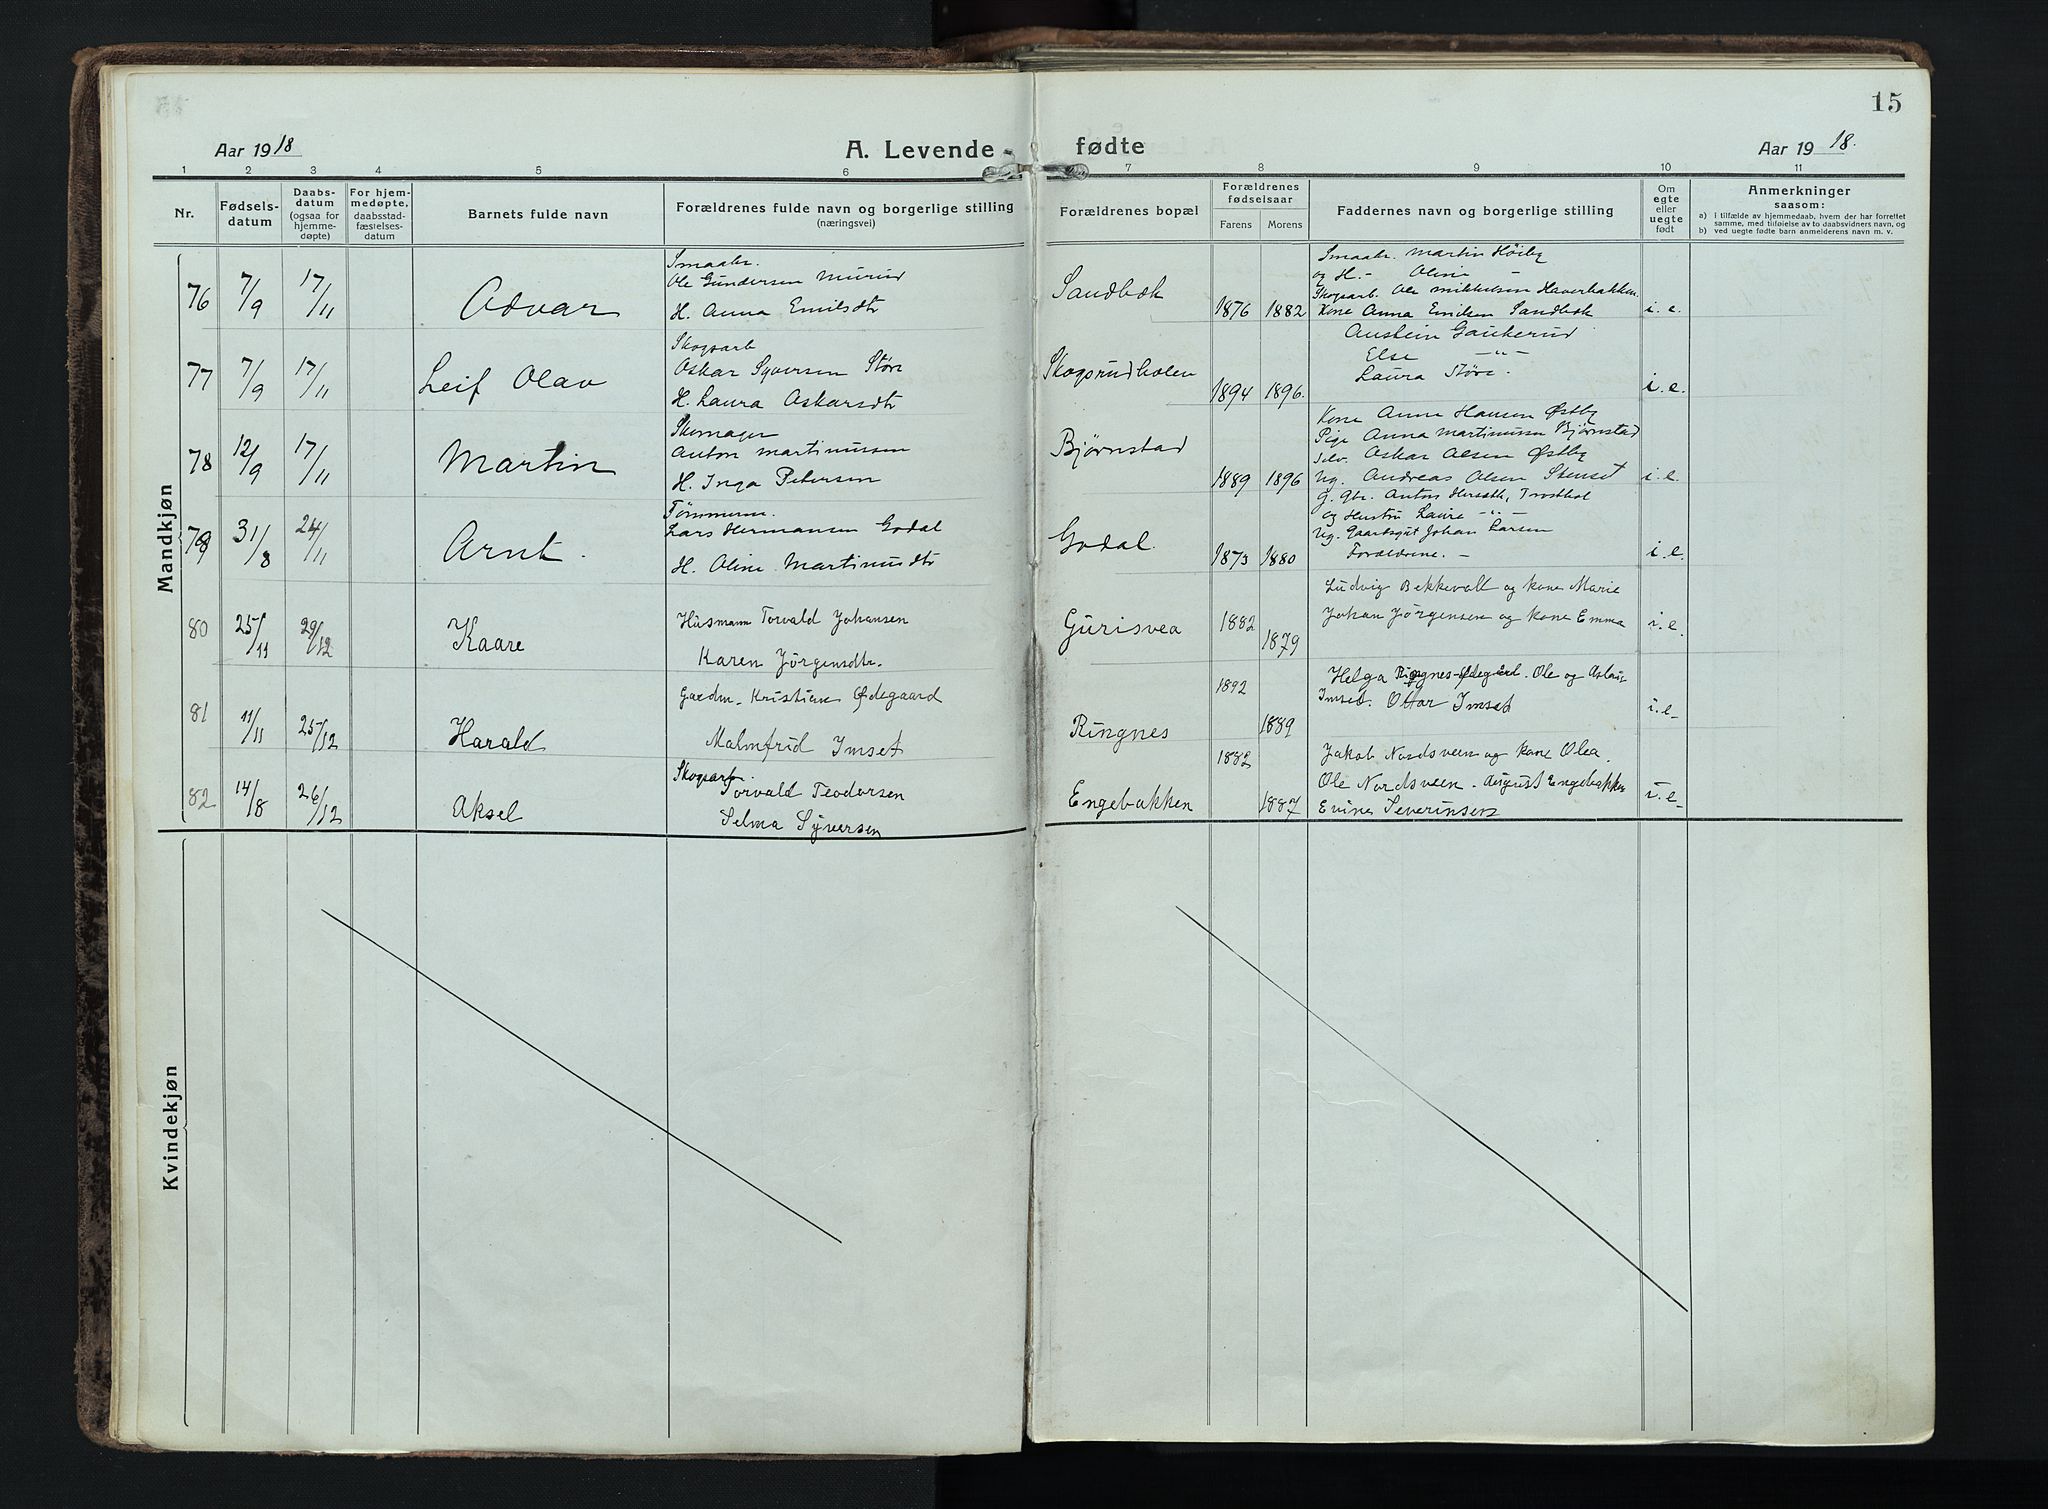 15
Aar 1918
A. Levende- fødte
Aar 1918.
1 2 3 4 5 6 7 8 9 10 11
Nr.
Fødsels-
datum
Daabs-
datum
(ogsaa for
hjemme-
døpte)
For hjem-
medøpte,
daabsstad-
fæstelses-
datum
Barnets fulde navn
Forældrenes fulde navn og borgerlige stilling
(næringsvei)
Forældrenes bopæl
Forældrenes
fødselsaar
Farens Morens
Faddernes navn og borgerlige stilling
Om
egte
eller
uegte
født
Anmerkninger
saasom:
a) i tilfælde av hjemmedaab, hvem der har forrettet
samme, med tilføielse av to daabsvidners navn, og
b) ved uegte fødte barn anmelderens navn m. v.
Mandkjøn
76 7/9 17/11 Odvar
Smaabr.
Ole Gundersen Murud
H. Anna Emilsdtr
Sandbæk 1876 1882
Smaabr. Martin Høiby
og H. - Oline
Skogsarb. Ole Mikkelsen Haverbakken
Kone Anna Emilsen Sandbæk
i. e.
77 7/9 17/11 Leif Olav
Skogsarb
Oskar Syversen Støre
H. Laura Oskarsdtr
Skogsrudholen 1894 1896.
Austein Gaukerud
Else -"-
Laura Støre.
i. e.
78 12/9 17/11 Martin
Skomager
Anton Martinussen
H. Inga Petersen
Bjørnstad 1889 1896
Kone Anna Hansen Østby
Pige Anna Martinussen Bjørnstad
Selv. Oskar Olsen Østby
Ug. Andreas Olsen Stenset
i. e.
79 31/8 24/11 Arnt.
Tømmerm.
Lars Hermansen Godal
H. Oline Martinusdtr
Godal. 1873 1880
G. gbr. Anton Herseth, Trosthol
og Hustru Laura -"-
Ug. Gaardsgut Johan Larsen
Forældrene. -
i. e.
80 25/11 29/12 Kaare
Husmann Torvald Johansen
Karen Jørgensdtr.
Gurisvea 1882 1879
Ludvig Bekkevoll og kone Marie
Johan Jørgensen og kone Emma
i. e.
81 11/11 25/12 Harald
Gardm. Kristian Ødegaard
Malmfrid Imset
Ringnes 1892 1889
Helga Ringnes-Ødegård. Ole og Aslaug
Imset. Ottar Imset
i. e.
82 14/8 26/12 Aksel
Skogsarb.
Torvald Teodorsen
Selma Syversen
Engebakken 1882 1887
Jakob Nordsveen og kone Olea.
Ole Nordsveen. August Engebakken
Evine Severinsen
i. e.
Kvindekjøn